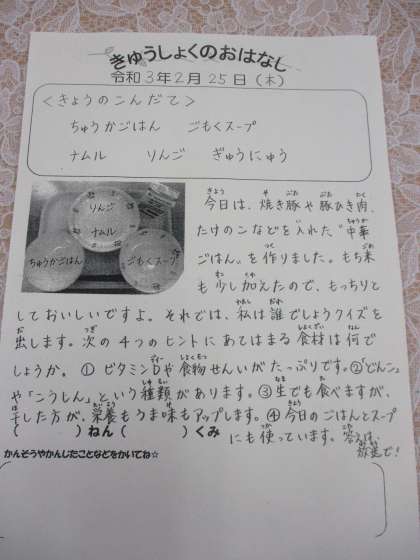 きゅうしょくのおはなし
令和3年2月25日(木)
<きょうのこんだて>
ちゅうかごはん ごもくスープ
ナムル りんご ぎゅうにゅう
りんご
ナムル
ちゅうかごはん ごもくスープ
今日は、焼き豚や豚ひき肉、
たけのこなどを入れた"中華
ごはん"を作りました。もち米
も少し加えたので、もっちりと
しておいしいですよ。それでは、私は誰でしょうクイズを
出します。次の4つのヒントにあてはまる食材は何で
しょうか。①ビタミンDや食物せんいがたっぷりです。②「どんこ」
や「こうしん」という種類があります。③生でも食べますが、
干した方が、栄養もうま味もアップします。④今日のごはんとスープ
にも使っています。答えは、
放送で!
( )ねん( )くみ
かんそうやかんじたことなどをかいてね☆